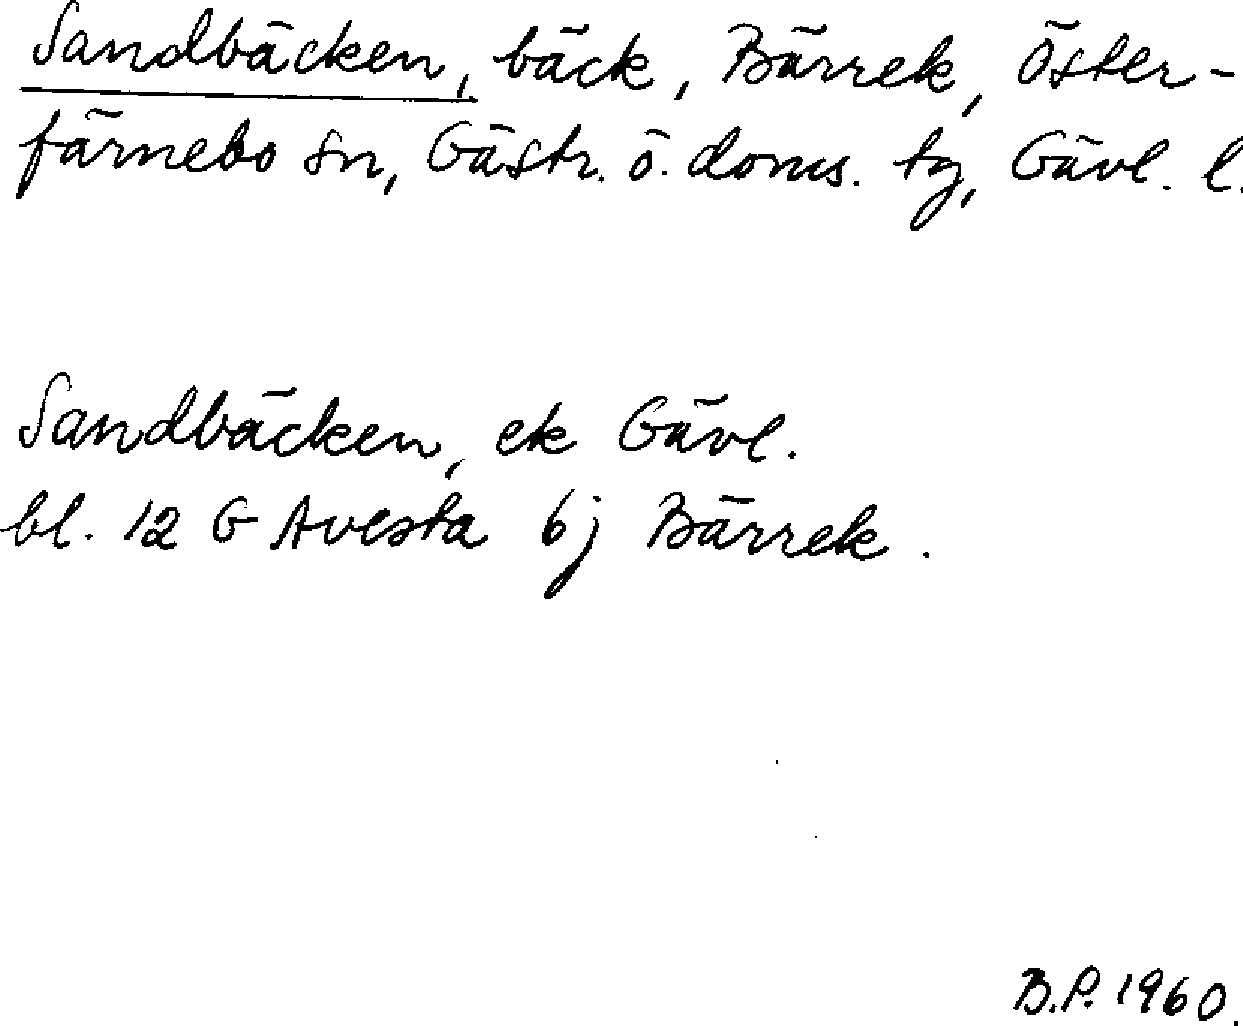 Sandbäcken, bäck, Bärrek, Öster-
färnebo sn, Gästr. ö. doms. tg, Gävl. l.
Sandbäcken, ek Gävl.
bl. 12 G Avesta 6j Bärrek.
B.P. 1960.